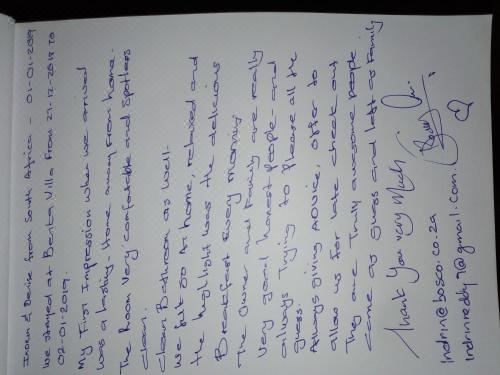 Indren & Denise from South Africa - 01-01-2019
We stayed at Benta Villa From 21-12-2018 to
02-01-2019.
My First Impression when we arrived
was a lasting - Home away from home.
The Room very comfortable and spotless
clean.
Clean Bathroom as well.
We felt so At home, relaxed and
the highlight was the delicious
Breakfast every morning
The owner and Family are really
very good honest people and
always Trying to Please all the
guess.
Always giving ADVICE, offer to
allow us for late check out
They are Truly awesome people
Came as Guess and left as Family
Thank You very Much
indrin@bosco.co.za
indrinreddy7@gmail.com